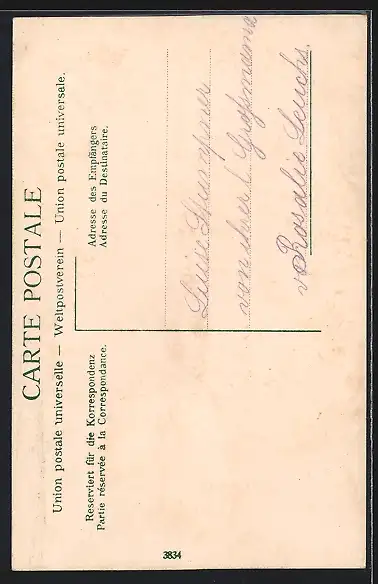 CARTE POSTALE
Union postale universelle — Weltpostverein — Union postale universale.
Reserviert für die Korrespondenz
Partie réservée à la Correspondance.
Adresse des Empfängers
Adresse du Destinataire.
Luise
von ihrer l. Großmama
v. Rosalie
3834